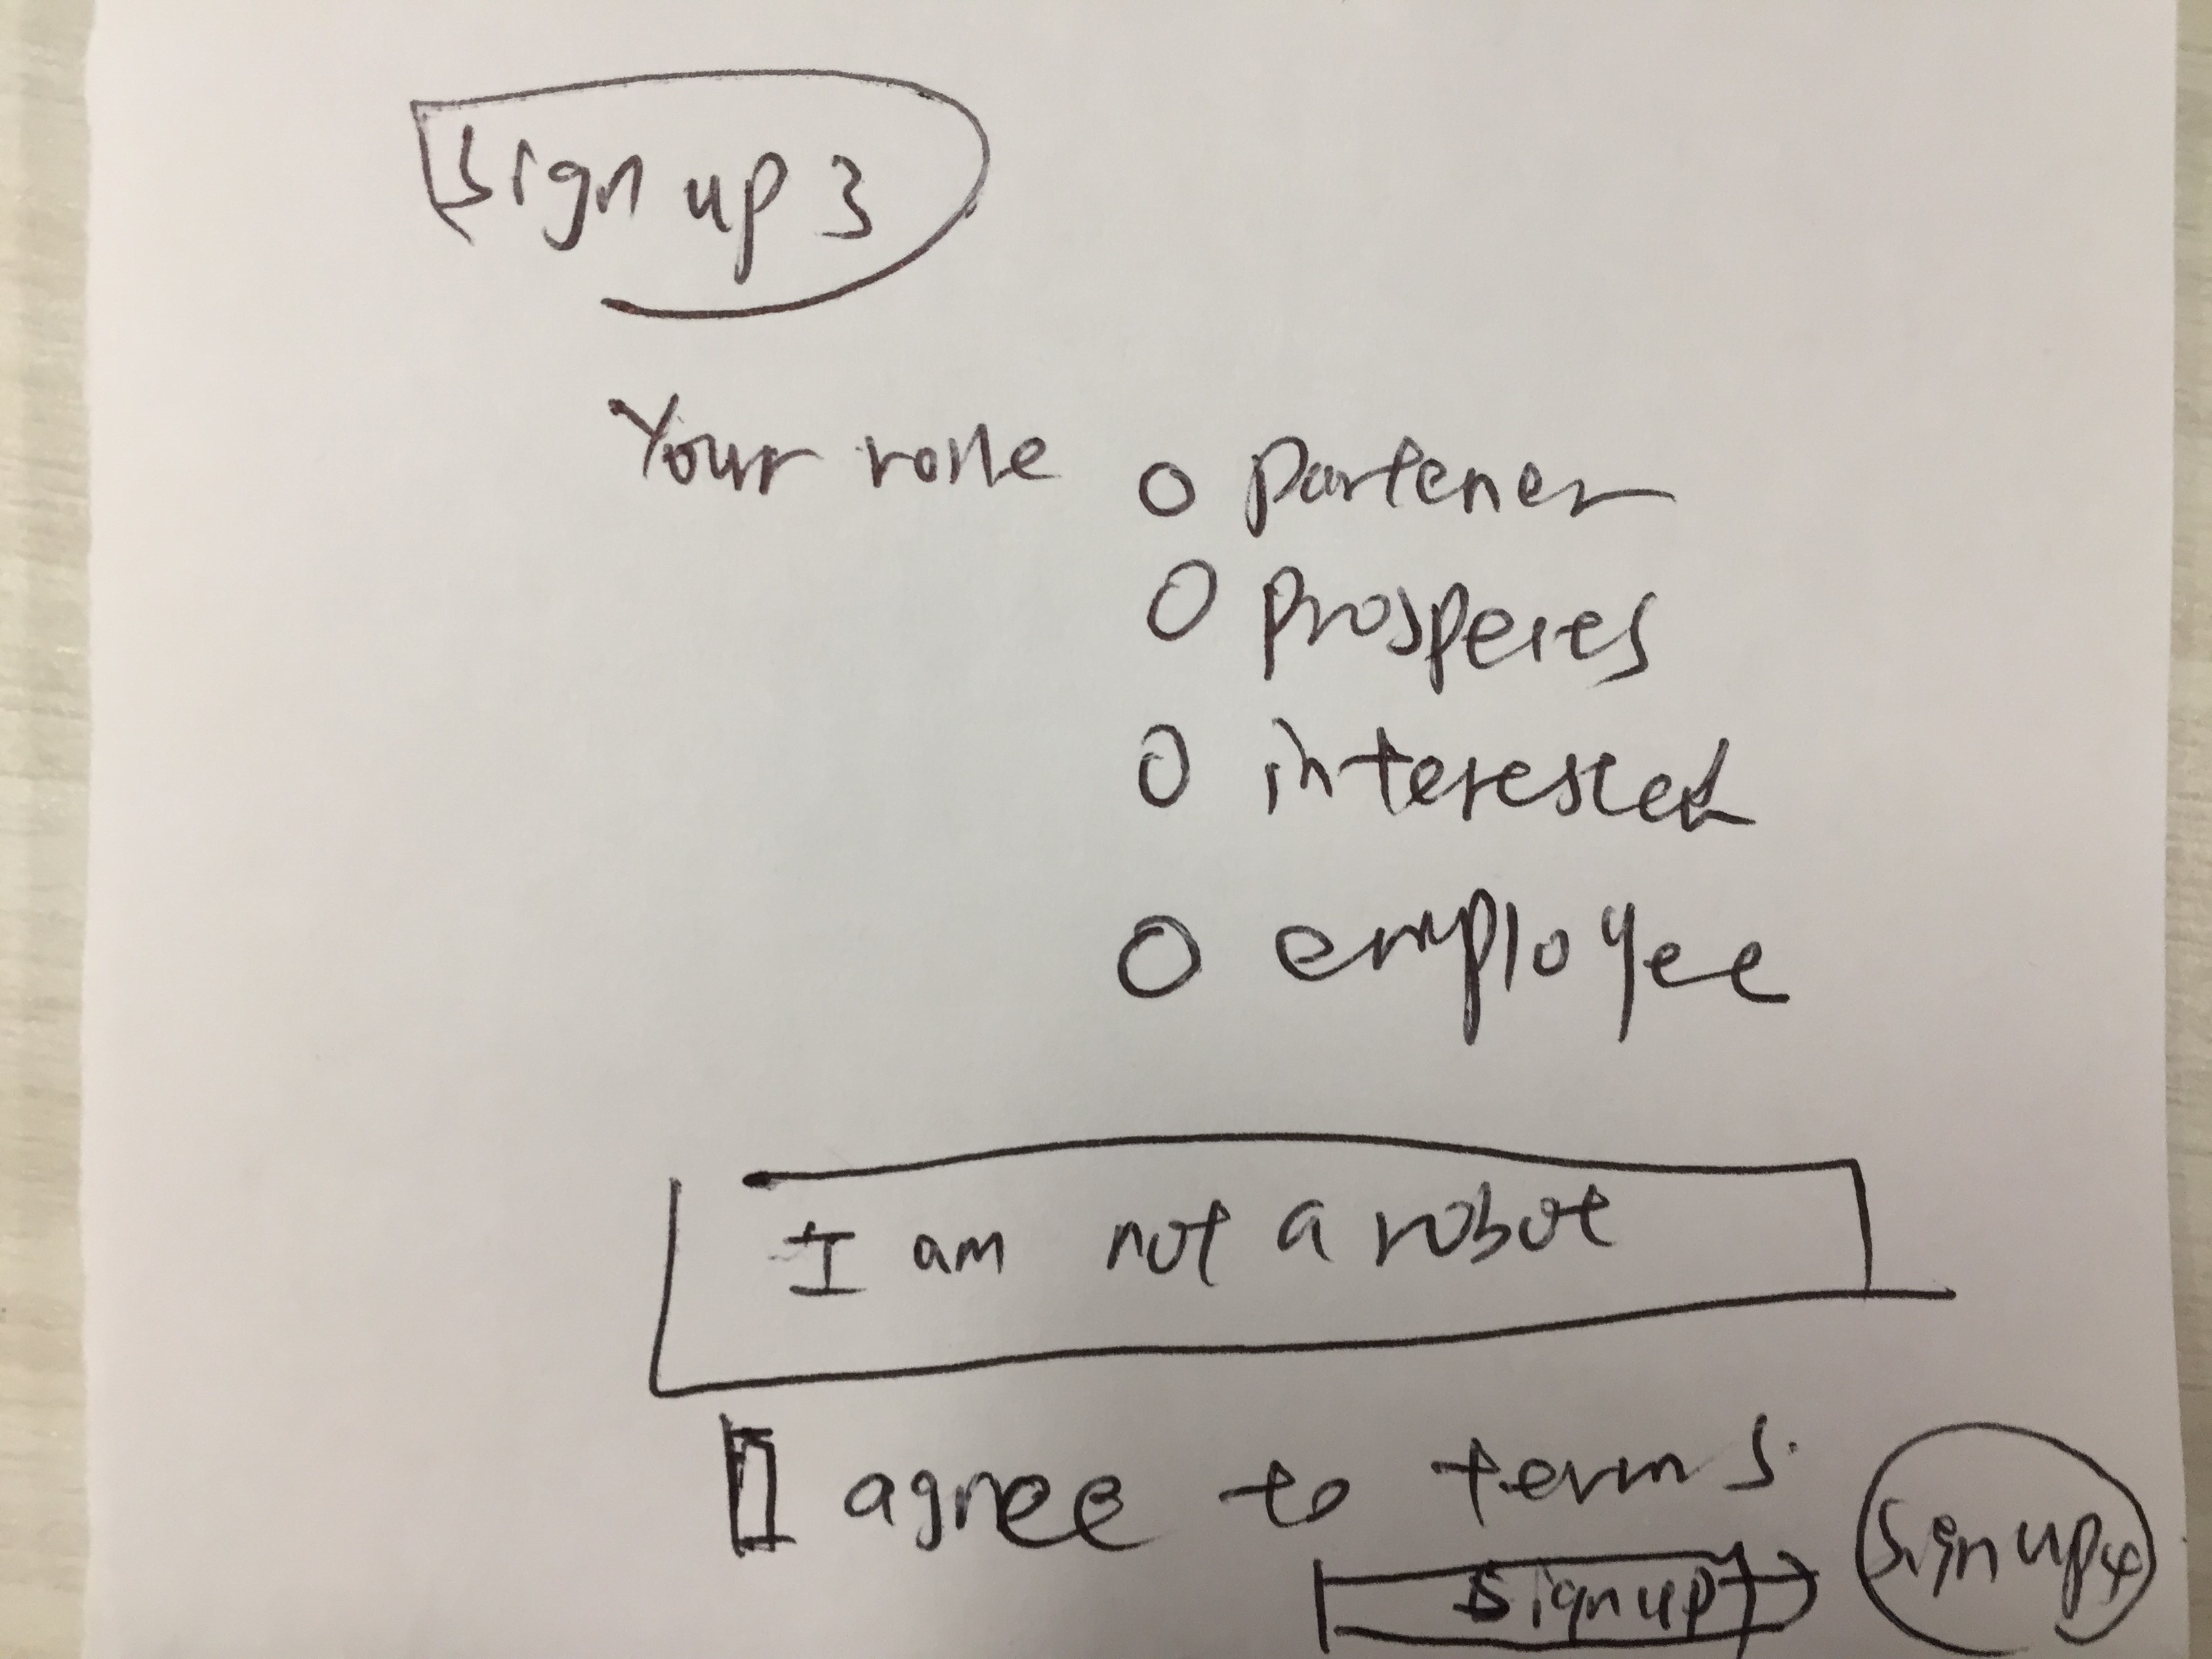 Sign up 3
Your rolle
O partener
O prosperes
O interested
O employee
I am not a robot
agree to terms.
Signup
Sign up 4